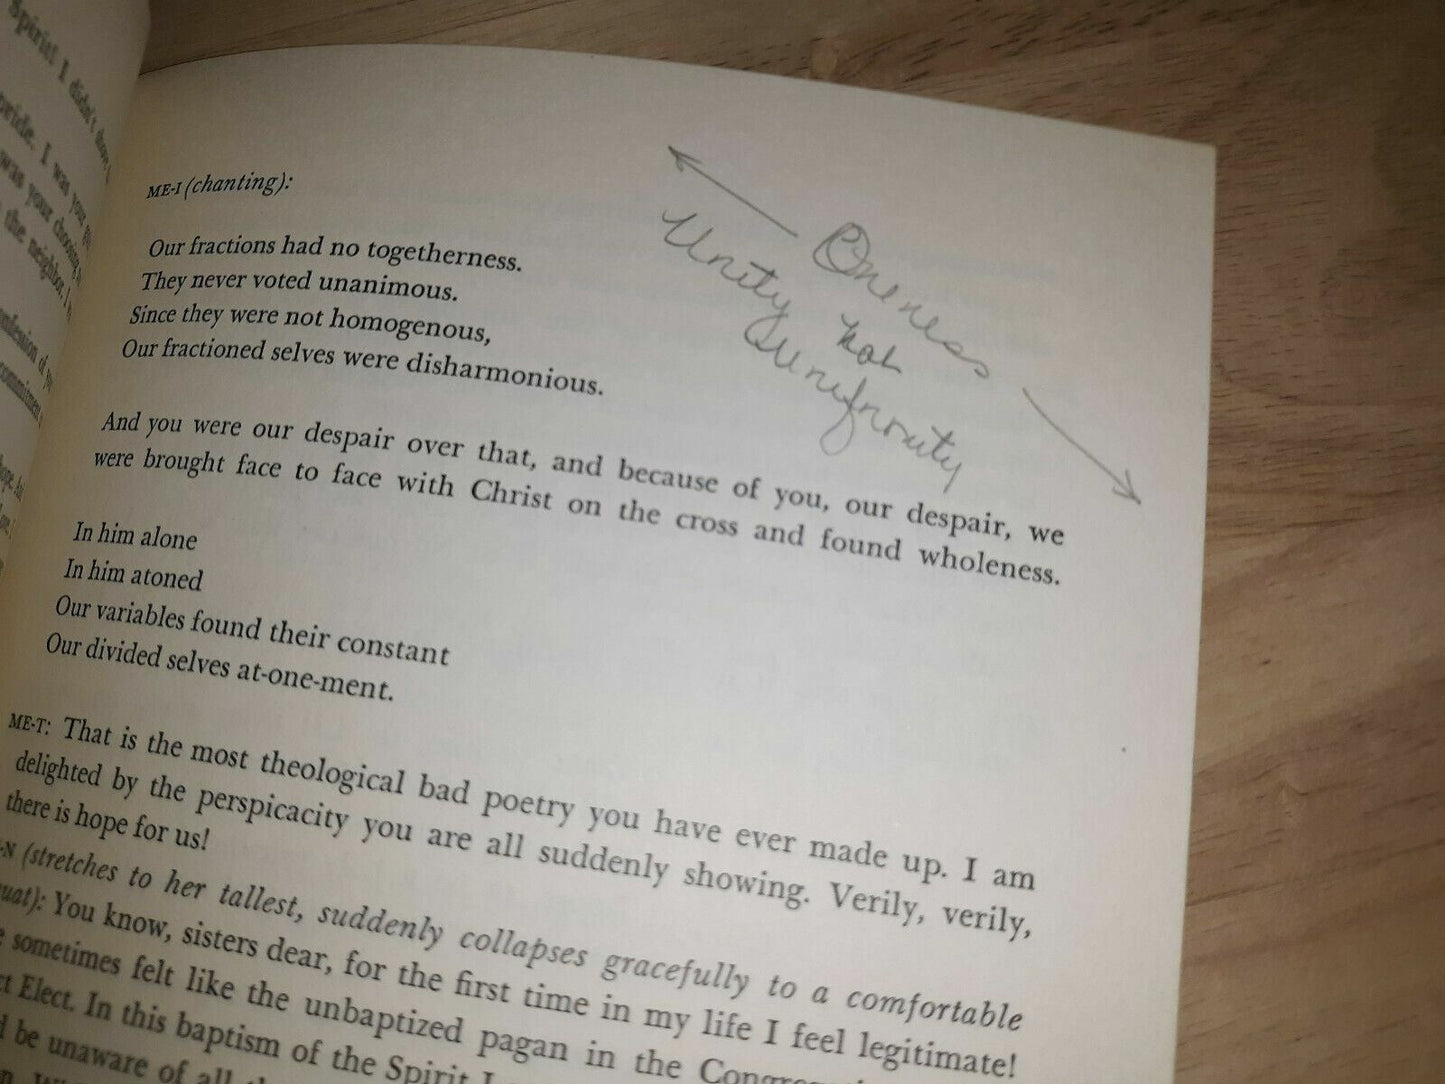 Spirit! I didn't
pride. I was your
was your choosing
the neighbor. I
confession of
commitment
ME-I (chanting):
Our fractions had no togetherness.
They never voted unanimous.
Since they were not homogenous,
Our fractioned selves were disharmonious.
Oneness
Unity not
And you were our despair over that, and because of you, our despair, we
were brought face to face with Christ on the cross and found wholeness.
In him alone
In him atoned
Our variables found their constant
Our divided selves at-one-ment.
ME-T: That is the most theological bad poetry you have ever made up. I am
delighted by the perspicacity you are all suddenly showing. Verily, verily,
there is hope for us!
-N (stretches to her tallest, suddenly collapses gracefully to a comfortable
uat): You know, sisters dear, for the first time in my life I feel legitimate!
sometimes felt like the unbaptized pagan in the
Elect. In this baptism of the Spirit I
be unaware of all